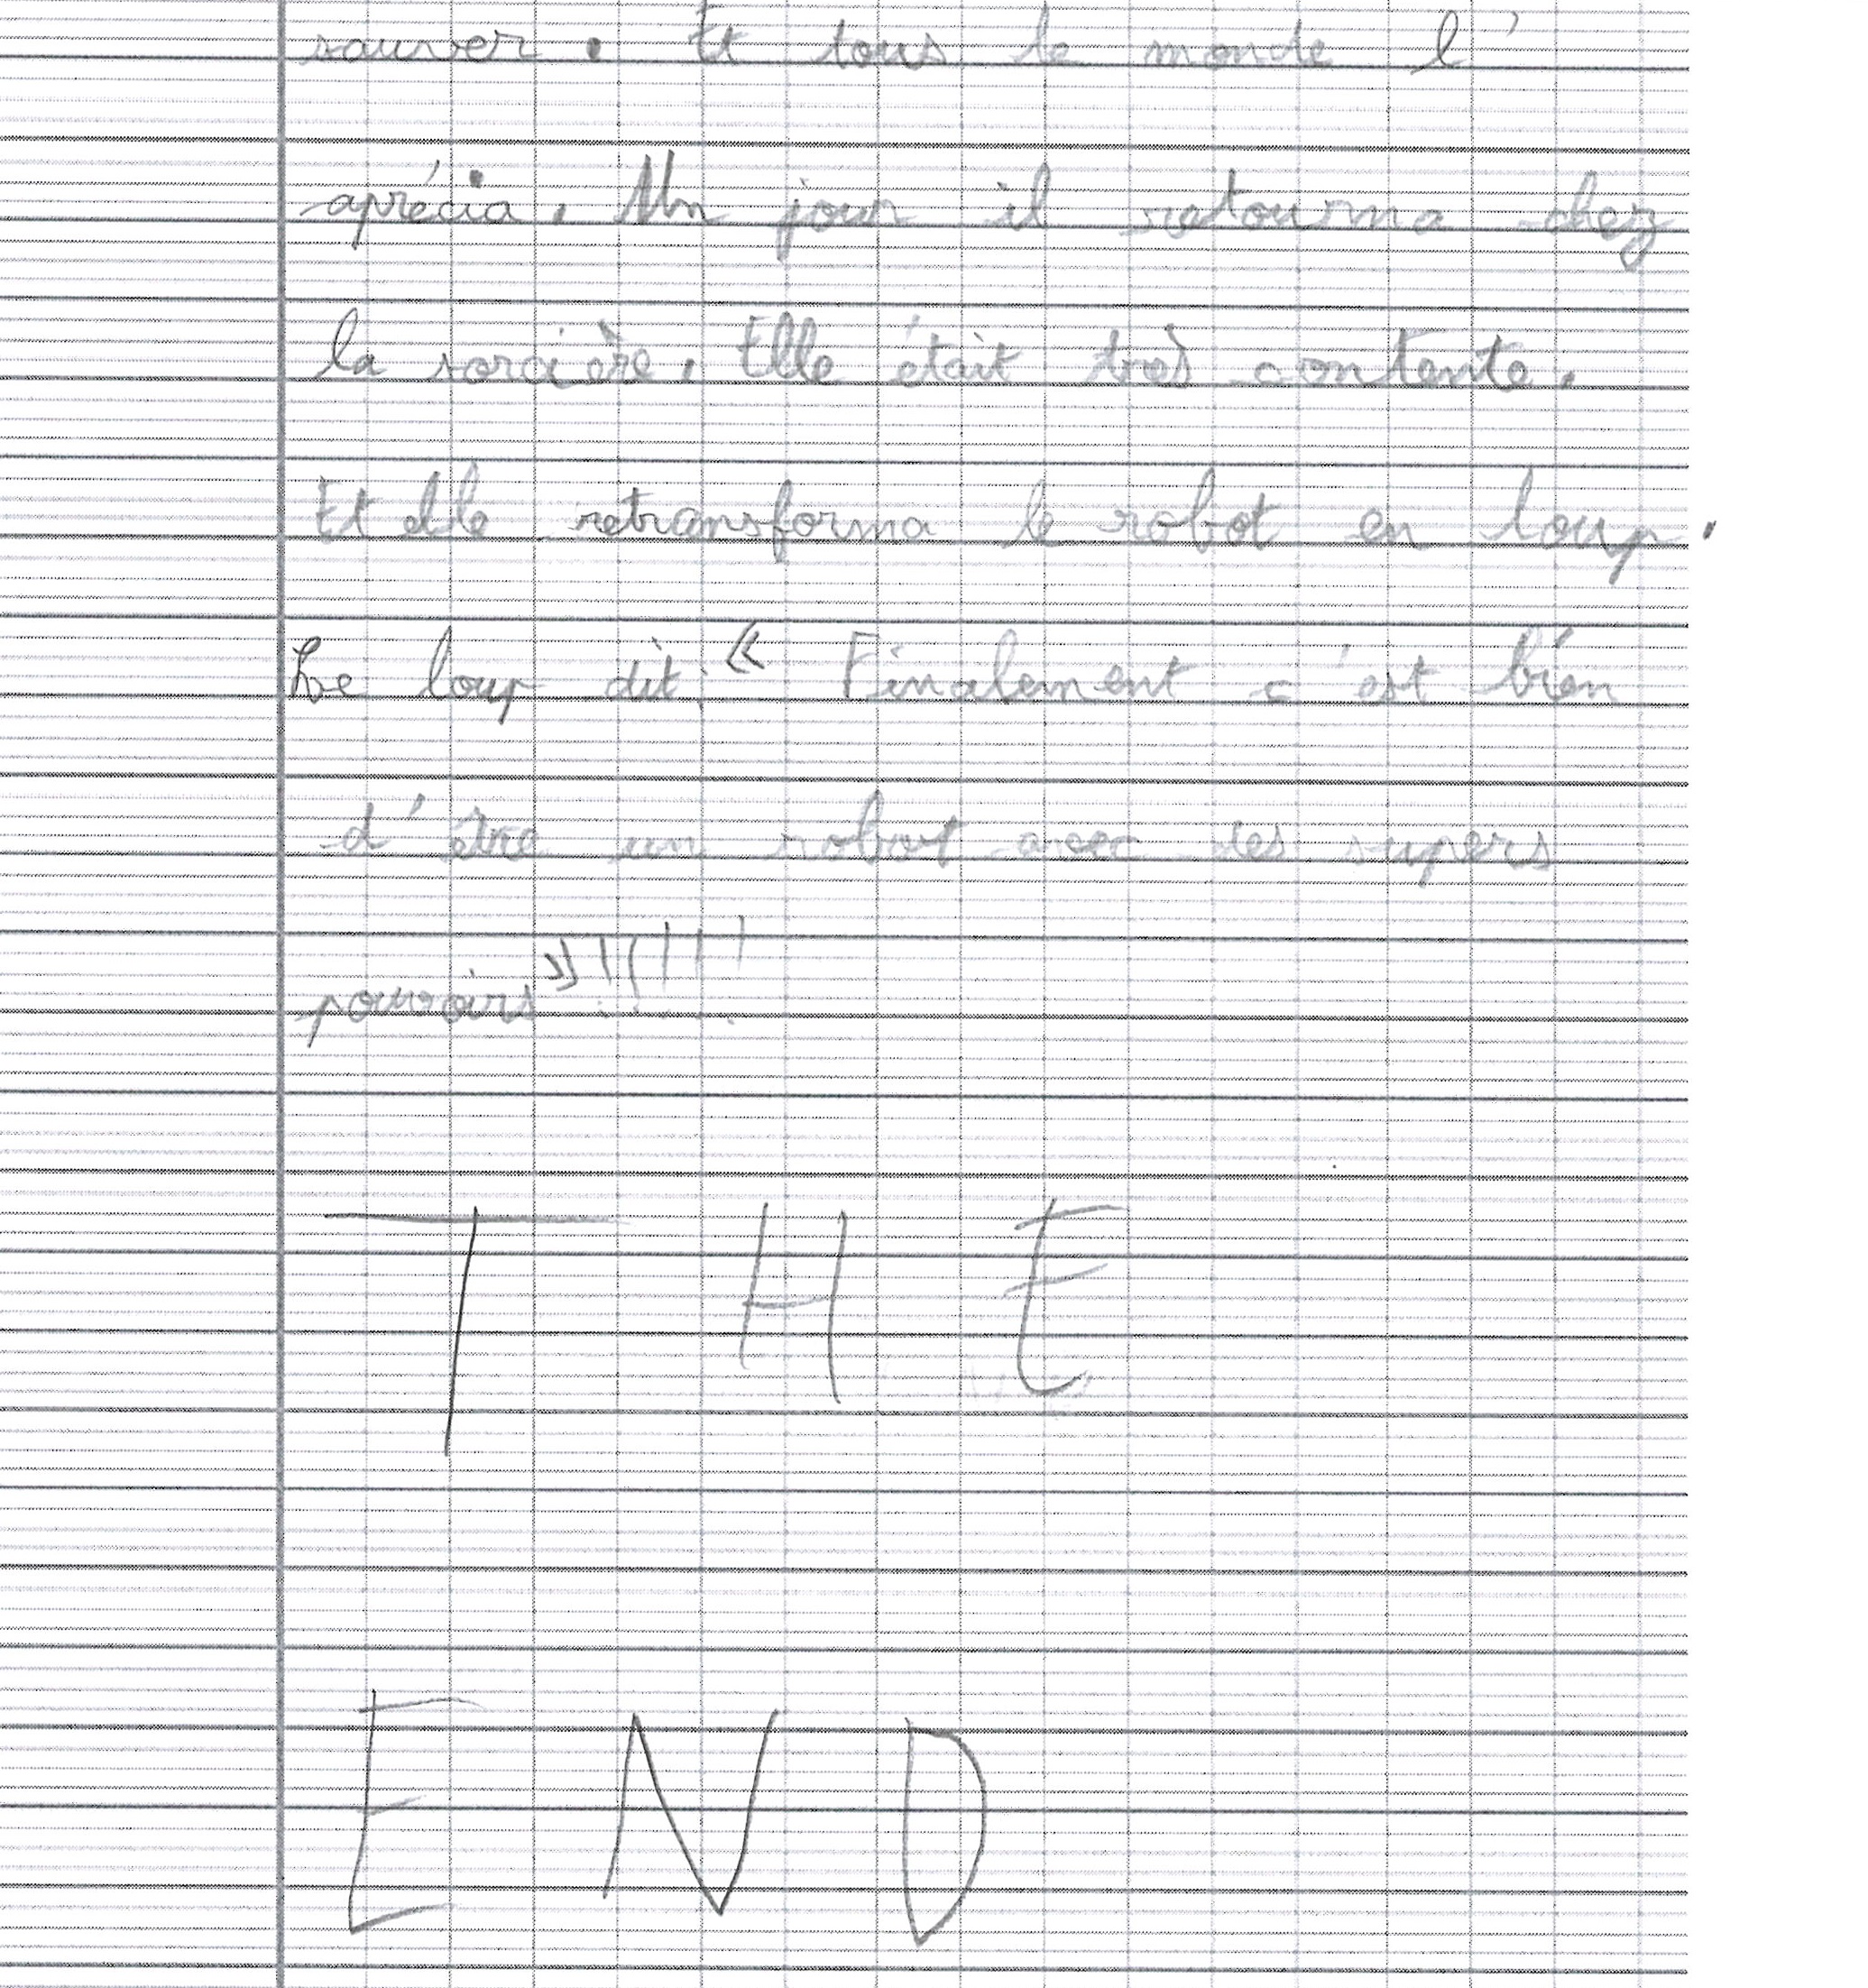 sauver. Et tous le monde l'
aprécia. Un jour il retourna chez
la sorcière. Elle était très contente.
Et elle retransforma le robot en loup.
Le loup dit: « Finalement c'est bien
d'être un robot avec des supers
pouvoirs »!!!!!
T H E
E N D